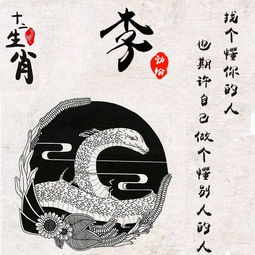 十二生肖
李
找个懂你的人
也期许自己做个懂别人的人